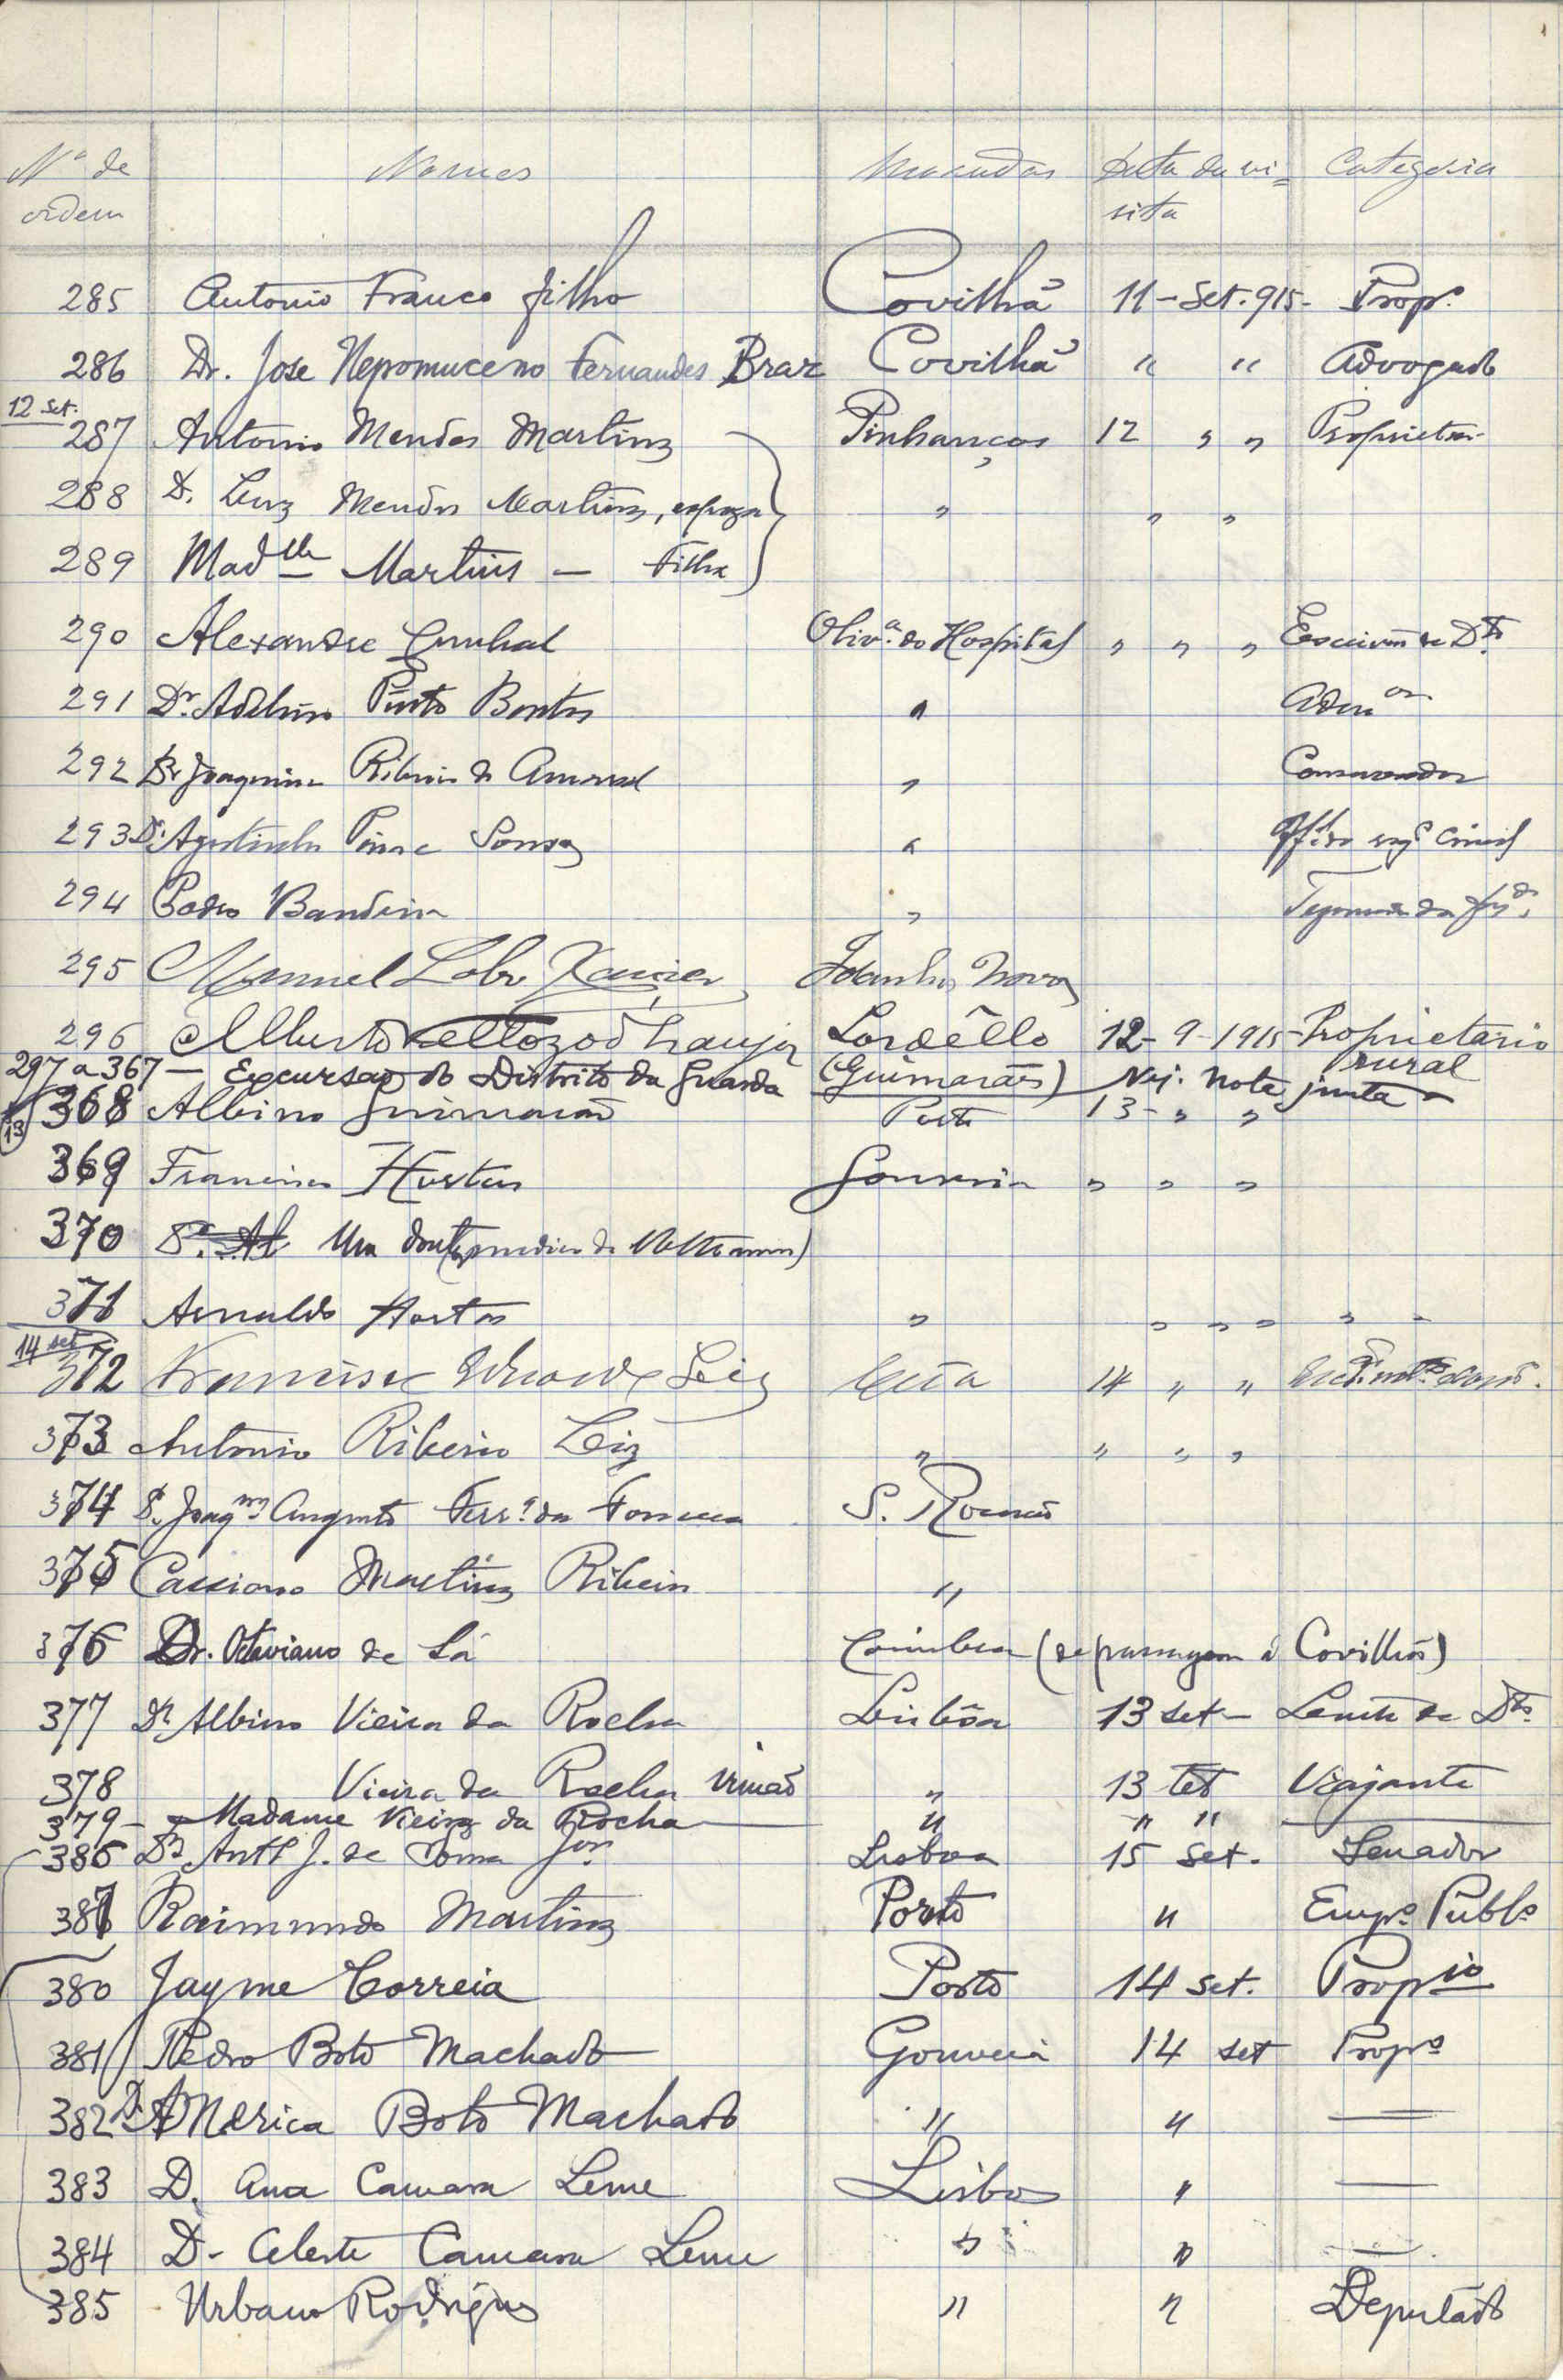 Nº de ordem Nomes Moradas Data da vi=sita Categoria
285 Antonio Franco filho Covilhã 11-Set.915- Propº
286 Dr. Jose Nepomuceno Fernandes Braz Covilhã " " Advogado
12 Set.
287 Antonio Mendes Martins Pinhanços 12 " "
288 D. Luz Mendes Martins, espoza " " "
289 Madlle Martins — Filha
290 Alexandre Cunhal Olivª do Hospital " " " Escrivão de Dto
291 Dr Adelino Pinto Bastos "
292 Dr Joaquim Ribeiro do Amaral " Conservador
293 Dr Agostinho Pina e Sousa "
294 Pedro Bandeira "
295 Manuel Lobo Xavier Idanha Nova
296 Alberto Vellozo d'Araujo Lordêllo 12-9-1915- Proprietario
297 a 367 — Excursão do Distrito da Guarda (Guimarães) Vej. Nota junta rural
368 Albino Guimarães Porto 13- " "
13
369 Francisco Hortas Gouveia " " "
370 Um dout
371 Arnaldo Hortas " " " " " "
14 set
372 Francisco Leiz Ceia 14 " "
373 Antonio Ribeiro Leiz " " " "
374 Dr. Joaqm Augusto Ferrª da Fonseca S. Romão
375 Cassiano Martins Ribeiro "
376 Dr. Octaviano de Sá Coimbra (de passagem á Covilhã)
377 Dr Albino Vieira da Rocha Lisbôa 13 set- Lente de Dto
378 Vieira da Rocha irmão " 13 set Viajante
379 - Madame Vieira da Rocha — " " " —
386 Dr Antº J. de Jor Lisboa 15 Set. Senador
387 Raimundo Martins Porto " Empº Publº
380 Jayme Correia Porto 14 set. Propio
381 Pedro Boto Machado Gouveia 14 set Propº
382 D. America Boto Machado " " —
383 D. Ana Camara Leme Lisboa " —
384 D. Celeste Camara Leme " " —
385 Urbano Rodrigues " " Deputado